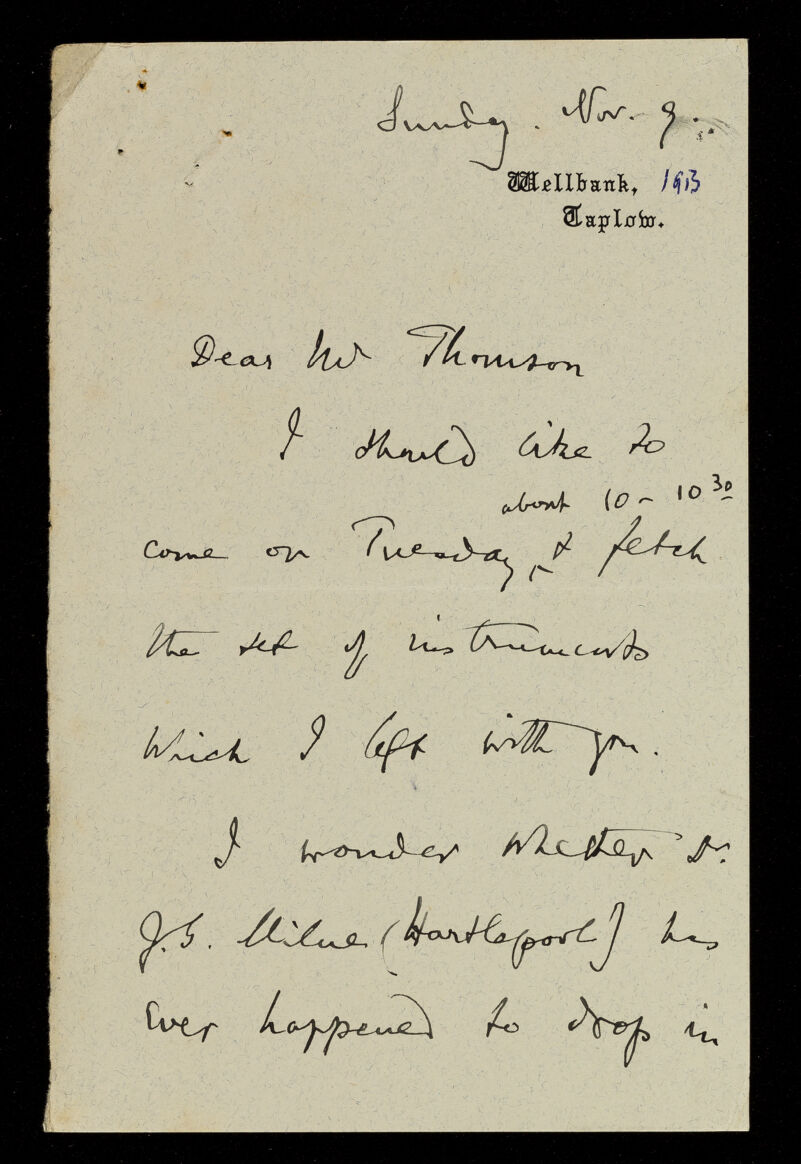 Sunday. Nov. 9.
Wellbank, 1913
Taplow.
Dear Mr Thomson
I should like to
about 10 - 10 30
come on Tuesday, & fetch
the set of instruments
which I left with you.
I wonder whether Dr.
J.G. Milne (Hartlepool) has
ever happened to drop in